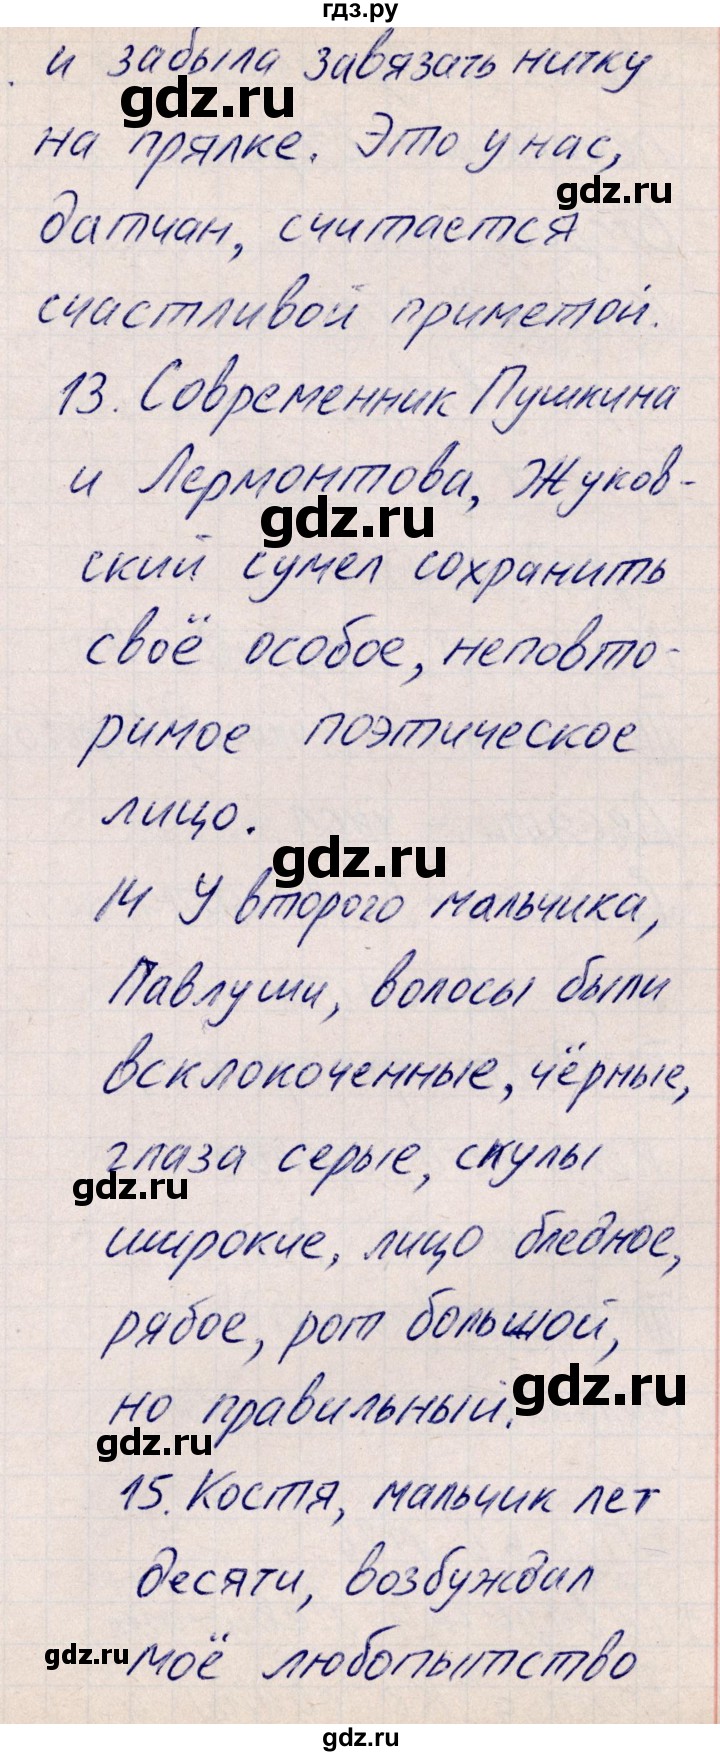 гдз.ру
и забыла завязать нитку
gdz.ru
на прялке. Это у нас,
gdz.ru
датчан, считается
счастливой приметой.
13. Современник Пушкина
и Лермонтова, Жуков-
gdz.ru
ский сумел сохранить
своё особое, неповто-
римое поэтическое
лицо.
gdz.ru
14 У второго мальчика,
Павлуши, волосы были
всклокоченные, чёрные,
глаза серые, скулы
gdz.ru
широкие, лицо бледное,
рябое, рот большой,
gdz.ru
но правильный.
gdz.ru
15. Костя, мальчик лет
десяти, возбуждал
gdz.ru
моё любопытство
gdz.ru